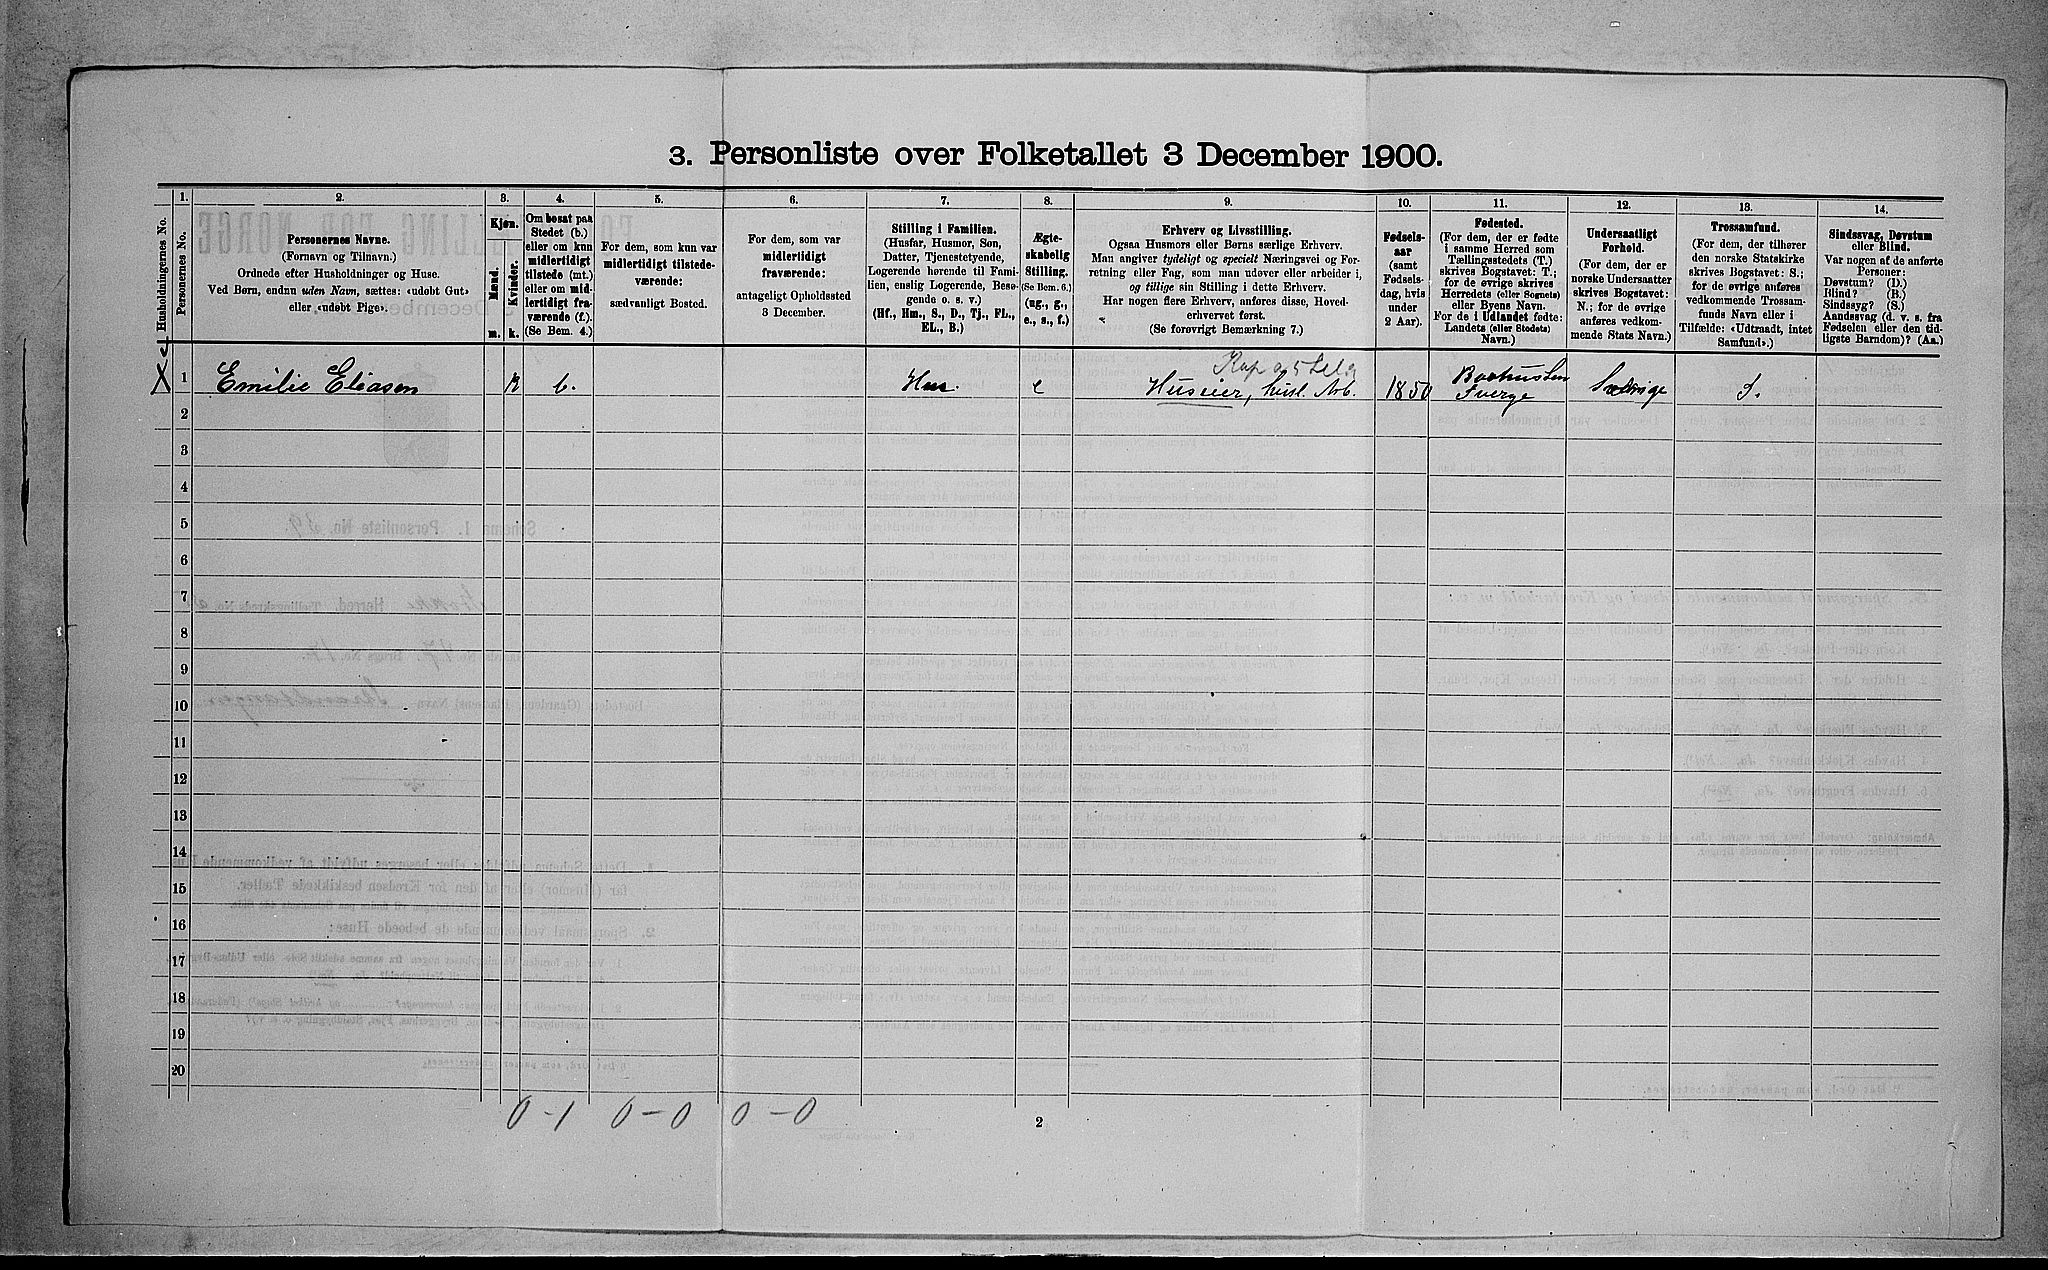 3. Personliste over Folketallet 3 December 1900.
Husholdningernes No.
1.
Personernes No.
2.
Personernes Navne.
(Fornavn og Tilnavn.)
Ordnede efter Husholdninger og Huse.
Ved Børn, endnu uden Navn, sættes: «udøbt Gut»
eller «udøbt Pige».
3.
Kjøn.
Mænd.
Kvinder.
m.
k.
4.
Om bosat paa
Stedet (b.)
eller om kun
midlertidigt
tilstede (mt.)
eller om mid-
lertidigt fra-
værende (f.).
(Se Bem. 4.)
5.
For dem, som kun var
midlertidigt tilstede-
værende:
sædvanligt Bosted.
6.
For dem, som var
midlertidigt
fraværende:
antageligt Opholdssted
3 December.
7.
Stilling i Familien.
(Husfar, Husmor, Søn,
Datter, Tjenestetyende,
Logerende hørende til Fami-
lien, enslig Logerende, Besø-
gende o. s. v.)
(Hf., Hm., S., D., Tj., FL.,
EL., B.)
8.
Ægte-
skabelig
Stilling.
(Se Bem. 6.)
(ug., g.,
e., s., f.)
9.
Erhverv og Livsstilling.
Ogsaa Husmors eller Børns særlige Erhverv.
Man angiver tydeligt og specielt Næringsvei og For-
retning eller Fag, som man udøver eller arbeider i,
og tillige sin Stilling i dette Erhverv.
Har nogen flere Erhverv, anføres disse, Hoved-
erhvervet først.
(Se forøvrigt Bemærkning 7.)
10.
Fødsels-
aar
(samt
Fødsels-
dag, hvis
under
2 Aar).
11.
Fødested.
(For dem, der er fødte
i samme Herred som
Tællingsstedets (T.)
skrives Bogstavet: T.;
for de øvrige skrives
Herredets (eller Sognets)
eller Byens Navn.
For de i Udlandet fødte:
Landets (eller Stedets)
Navn.)
12.
Undersaatligt
Forhold.
(For dem, der er
norske Undersaatter
skrives Bogstavet:
N.; for de øvrige
anføres vedkom-
mende Stats Navn.)
13.
Trossamfund.
(For dem, der tilhører
den norske Statskirke
skrives Bogstavet: S.;
for de øvrige anføres
vedkommende Trossam-
funds Navn eller i
Tilfælde: «Udtraadt, intet
Samfund».)
14.
Sindssvag, Døvstum
eller Blind.
Var nogen af de anførte
Personer:
Døvstum? (D.)
Blind? (B.)
Sindssyg? (S.)
Aandssvag (d. v. s. fra
Fødselen eller den tid-
ligste Barndom)? (Aa.)
1 Emilie Eliasen k b. Hm. e Huseier, husl. Arb. 1850 Sverge Sverige S.
2
3
4
5
6
7
8
9
10
11
12
13
14
15
16
17
18
19
20
0 - 1 0 - 0 0 - 0
2